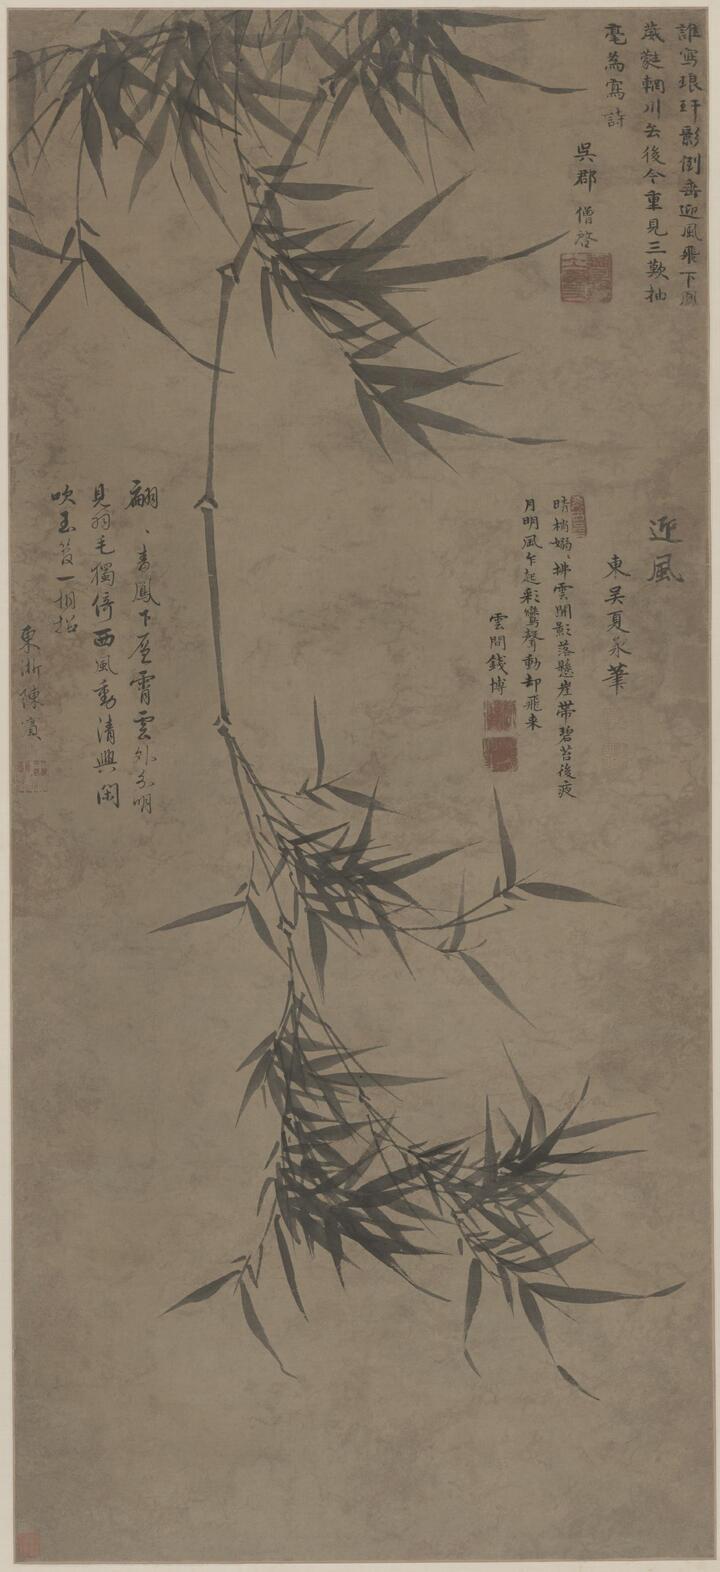 誰寫琅玕影倒垂迎風飛下鳳
葳蕤輞川去後今重見三歎抽
毫為寫詩
吳郡 僧啓
迎風
東吳夏永筆
晴梢嫋々拂雲開影落懸崖帶碧苔後夜
月明風乍起彩鸞聲動却飛來
雲間錢博
翩々青鳳下層霄雲外分明
見羽毛獨倚西風動清興閑
吹玉笛一相招
東浙陳